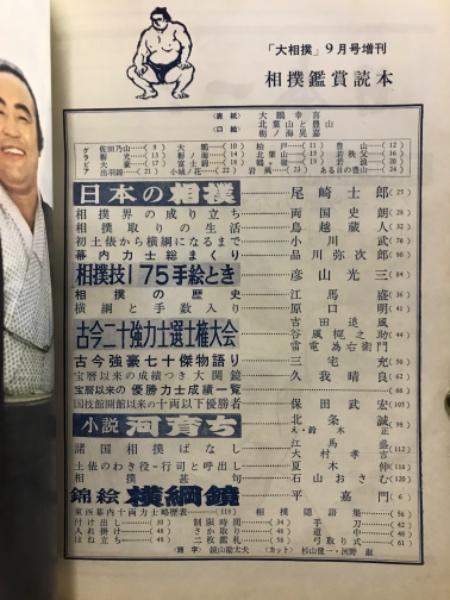 「大相撲」9月号増刊
相撲鑑賞読本
〈表紙〉 大鵬幸喜
〈口絵〉 北葉山と豊山
栃ノ海晃嘉
グラビア
佐田乃山……(9) 大鵬……(10) 柏戸……(11) 豊山……(12)
栃光……(13) 栃ノ海……(14) 北葉山……(15) 若秩父……(16)
大豪……(17) 富士錦……(18) 鶴ヶ嶺……(19) 若浪……(20)
出羽錦……(21) 小城ノ花……(22) 岩風……(23) ある日の豊山……(24)
日本の相撲……尾崎士郎(25)
相撲界の成り立ち……両国史朗(28)
相撲取りの生活……鳥越蔵人(32)
初土俵から横綱になるまで……小川武(70)
幕内力士総まくり……品川弥次郎(90)
相撲技175手絵とき……彦山光三(84)
相撲の歴史……江馬盛(36)
横綱と手数入り……原口明(41)
古今二十強力士選士権大会……吉田追風
谷風梶之助(44)
雷電為右衛門
古今強豪七十傑物語り……三宅充(50)
宝暦以来の成績つき大鏡……久我晴良(62)
宝暦以来の優勝力士成績一覧……(66)
国技館開館以来の十両以下優勝者……保田武宏(105)
小説 河育ち……北条誠(98)
え・鈴木正
諸国相撲ばなし……江馬盛(112)
大村孝吉
土俵のわき役・行司と呼出し……夏木伸(116)
相撲甚句……石山おさむ(120)
錦絵 横綱鏡……平嘉門(6)
東西幕内十両力士略歴表……(118) 相撲隠語集……(56)
付け出し……(30) 制限時間……(34) 手刀……(42)
入れ掛け……(48) さか取り……(48) 道中……(48)
はね立ち……(48) 二枚鑑札……(58) 弓取り式……(61)
〈題字〉鏡山龍太夫 〈カット〉杉山健一・河野